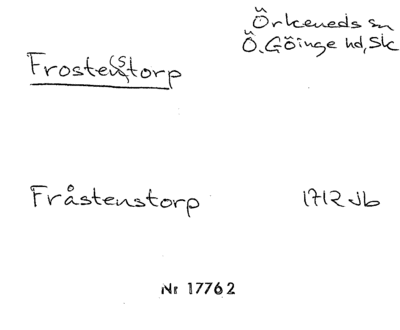 Örkeneds sn
Ö. Göinge hd, Sk
Frosten(s)torp
Fråstenstorp 1712 Jb
Nr 17762